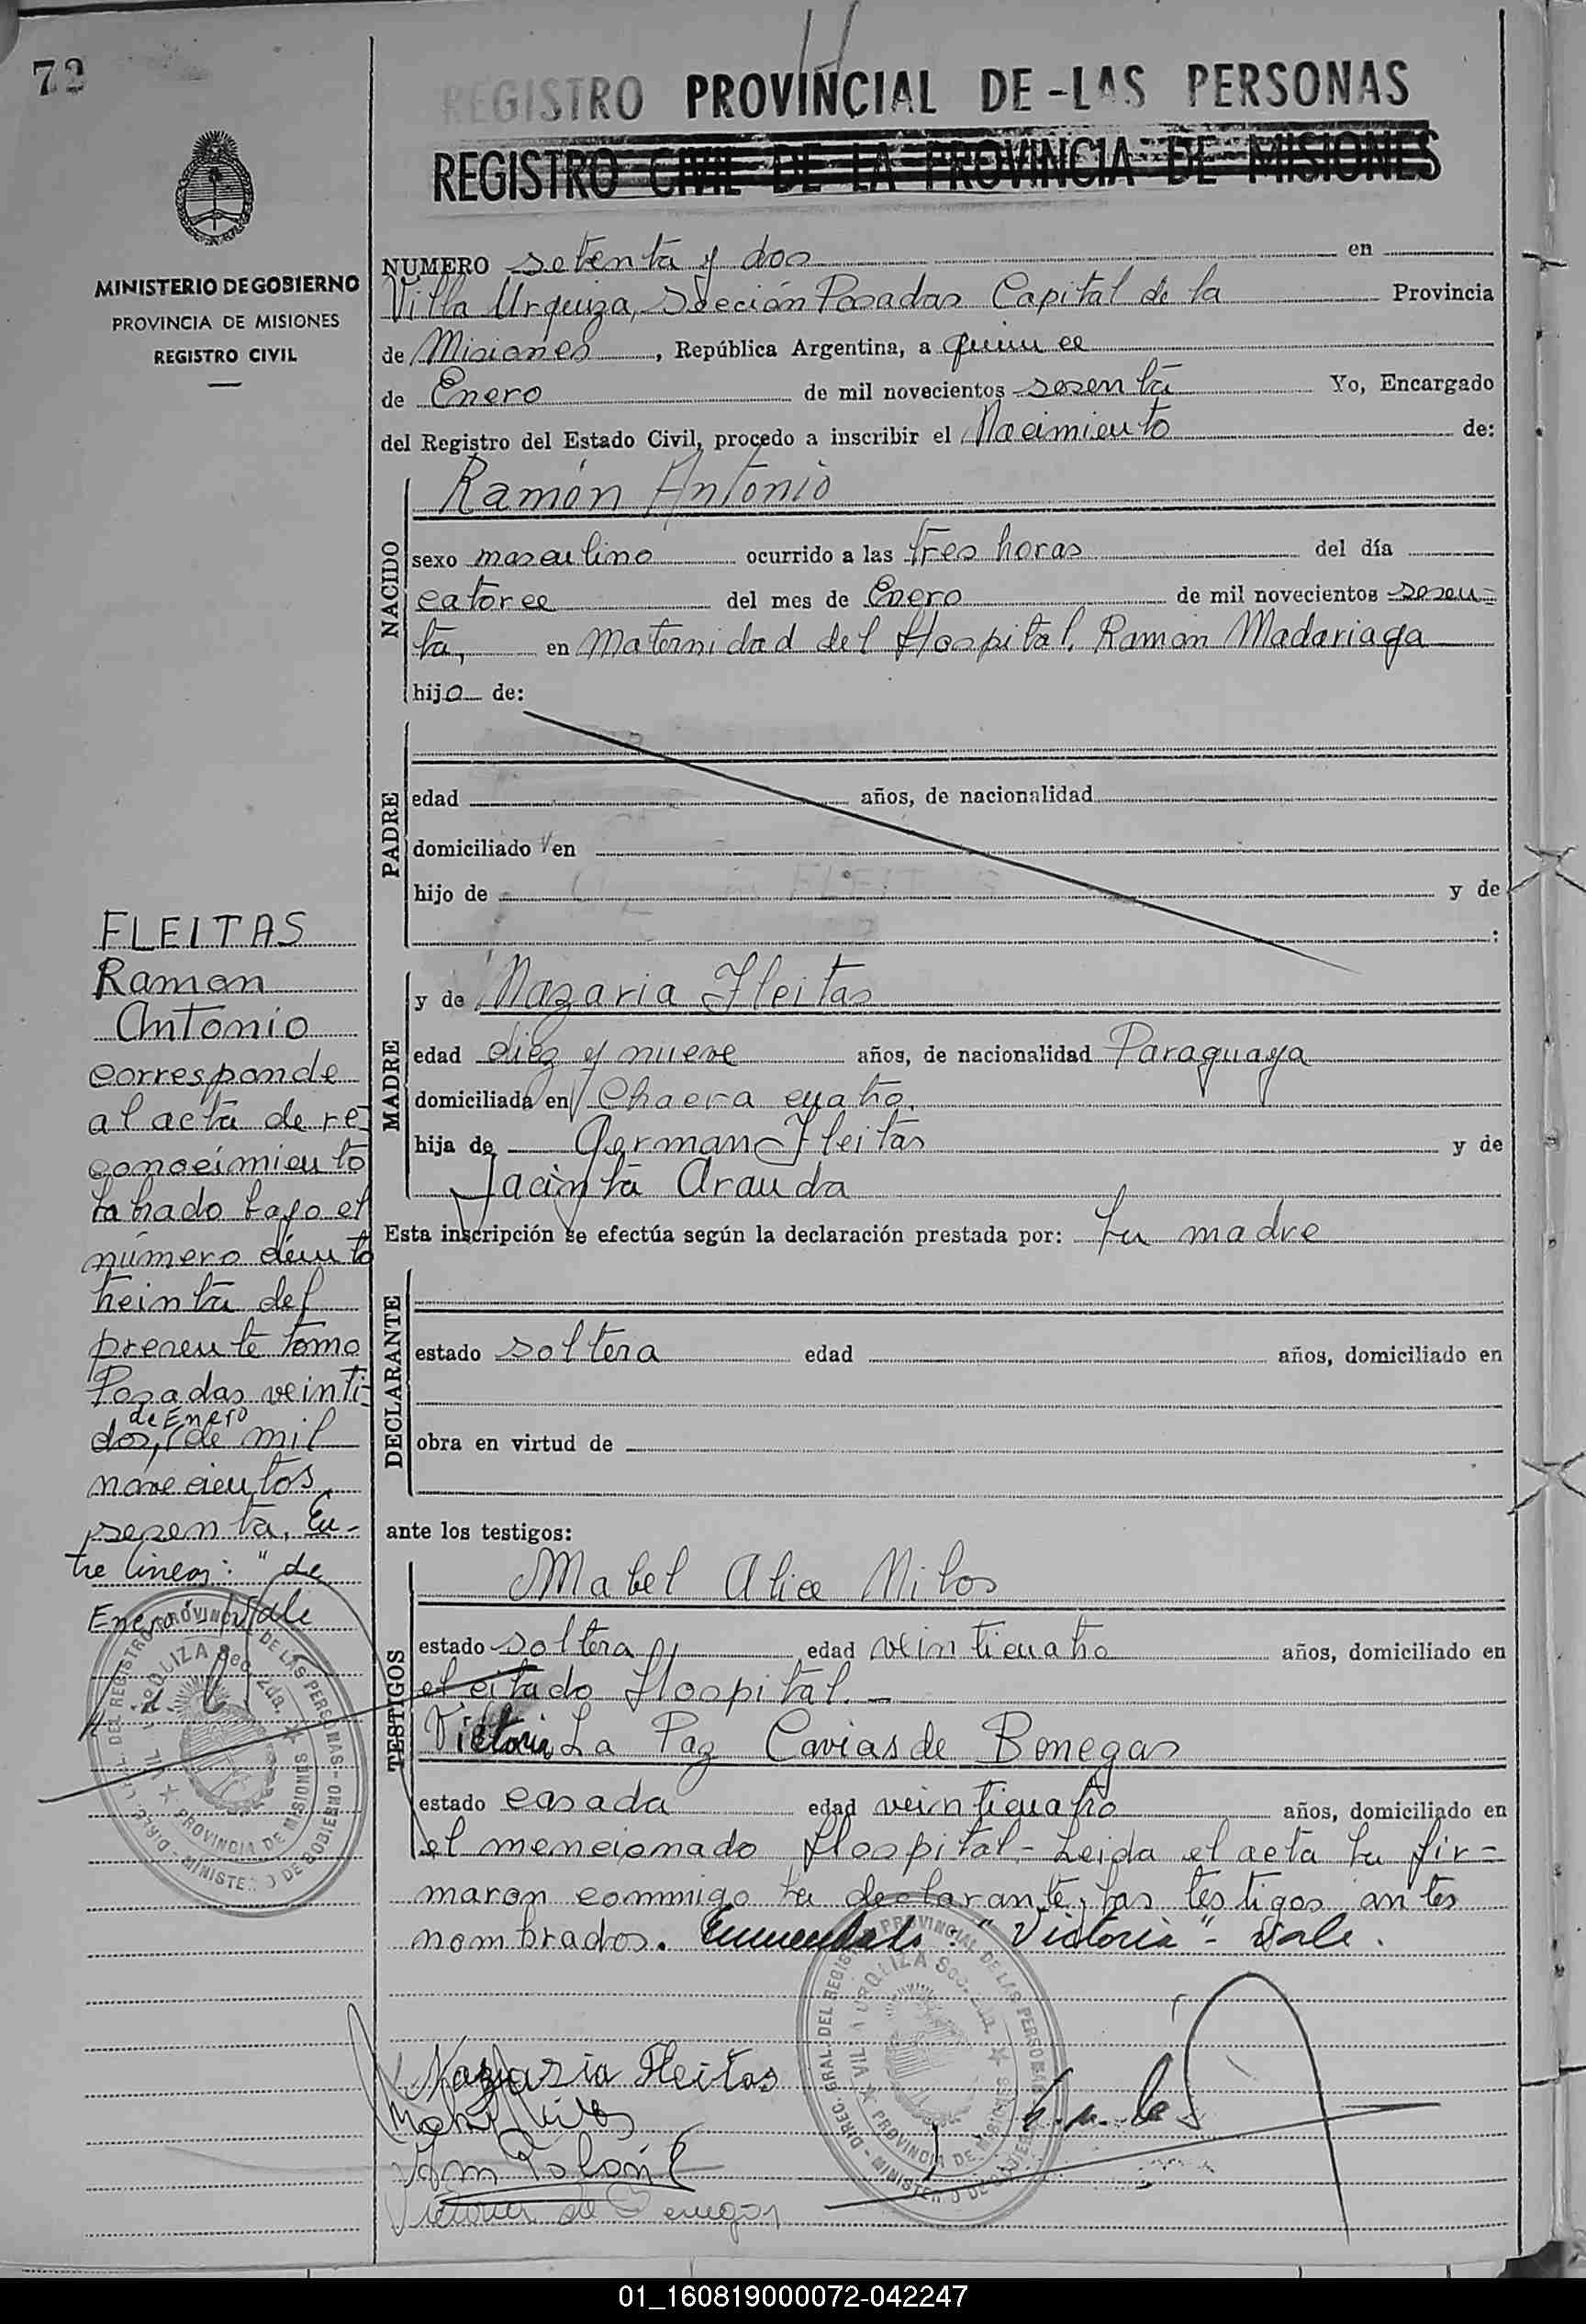 72
REGISTRO PROVINCIAL DE-LAS PERSONAS
REGISTRO CIVIL DE LA PROVINCIA DE MISIONES
MINISTERIO DE GOBIERNO
PROVINCIA DE MISIONES
REGISTRO CIVIL
NUMERO setenta y dos en
Villa Urquiza, Sección Posadas Capital de la Provincia
de Misiones, República Argentina, a quince
de Enero de mil novecientos sesenta Yo, Encargado
del Registro del Estado Civil, procedo a inscribir el Nacimiento de:
NACIDO
Ramón Antonio
sexo masculino ocurrido a las tres horas del día
catorce del mes de Enero de mil novecientos sesen=
ta, en Maternidad del Hospital Ramón Madariaga
hijo de:
PADRE
edad años, de nacionalidad
domiciliado en
hijo de y de
:
MADRE
y de Nazaria Fleitas
edad diez y nueve años, de nacionalidad Paraguaya
domiciliada en Chacra cuatro.
hija de German Fleitas y de
Jacinta Aranda
Esta inscripción se efectúa según la declaración prestada por: su madre
DECLARANTE
estado soltera edad años, domiciliado en
obra en virtud de
ante los testigos:
TESTIGOS
Mabel Alice Milos
estado soltera edad veinticuatro años, domiciliado en
el citado Hospital.-
Victoria La Paz Cavias de Benegas
estado casada edad veinticuatro años, domiciliado en
el mencionado Hospital.- Leida el acta la fir=
maron conmigo la declarante, las testigos antes
nombrados. Enmendado: "Victoria"- Vale.
Nazaria Fleitas
Victoria de Benegas
FLEITAS
Ramon
Antonio
corresponde
al acta de re-
conocimiento
labrado bajo el
número ciento
treinta del
presente tomo
Posadas veinti-
de Enero
dos, de mil
novecientos
sesenta. En-
tre lineas: "de
Enero" Vale
DIREC. GRAL. DEL REGISTRO PROVINCIAL DE LAS PERSONAS - MINISTERIO DE GOBIERNO
VILLA URQUIZA Sec. 2da. PROVINCIA DE MISIONES
DIREC. GRAL. DEL REGISTRO PROVINCIAL DE LAS PERSONAS - MINISTERIO DE GOBIERNO
VILLA URQUIZA Sec. 2da. PROVINCIA DE MISIONES
01_160819000072-042247